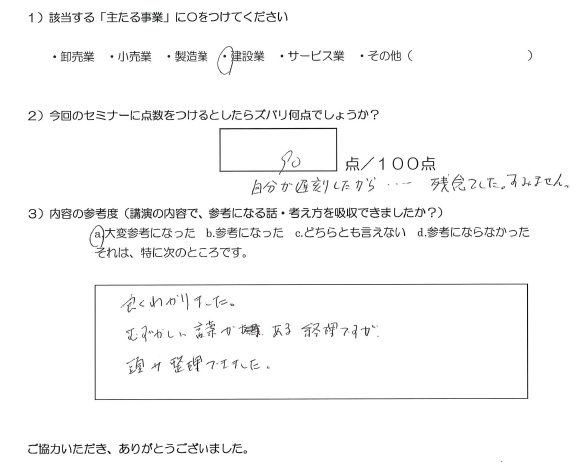 1）該当する「主たる事業」に○をつけてください
・卸売業 ・小売業 ・製造業 ・建設業 ・サービス業 ・その他（ ）
2）今回のセミナーに点数をつけるとしたらズバリ何点でしょうか？
90 点／100点
自分が遅刻したから…… 残念でした。すみません。
3）内容の参考度（講演の内容で、参考になる話・考え方を吸収できましたか？）
a.大変参考になった b.参考になった c.どちらとも言えない d.参考にならなかった
それは、特に次のところです。
良くわかりました。
むずかしい言葉が ある 経理ですが
頭が整理できました。
ご協力いただき、ありがとうございました。